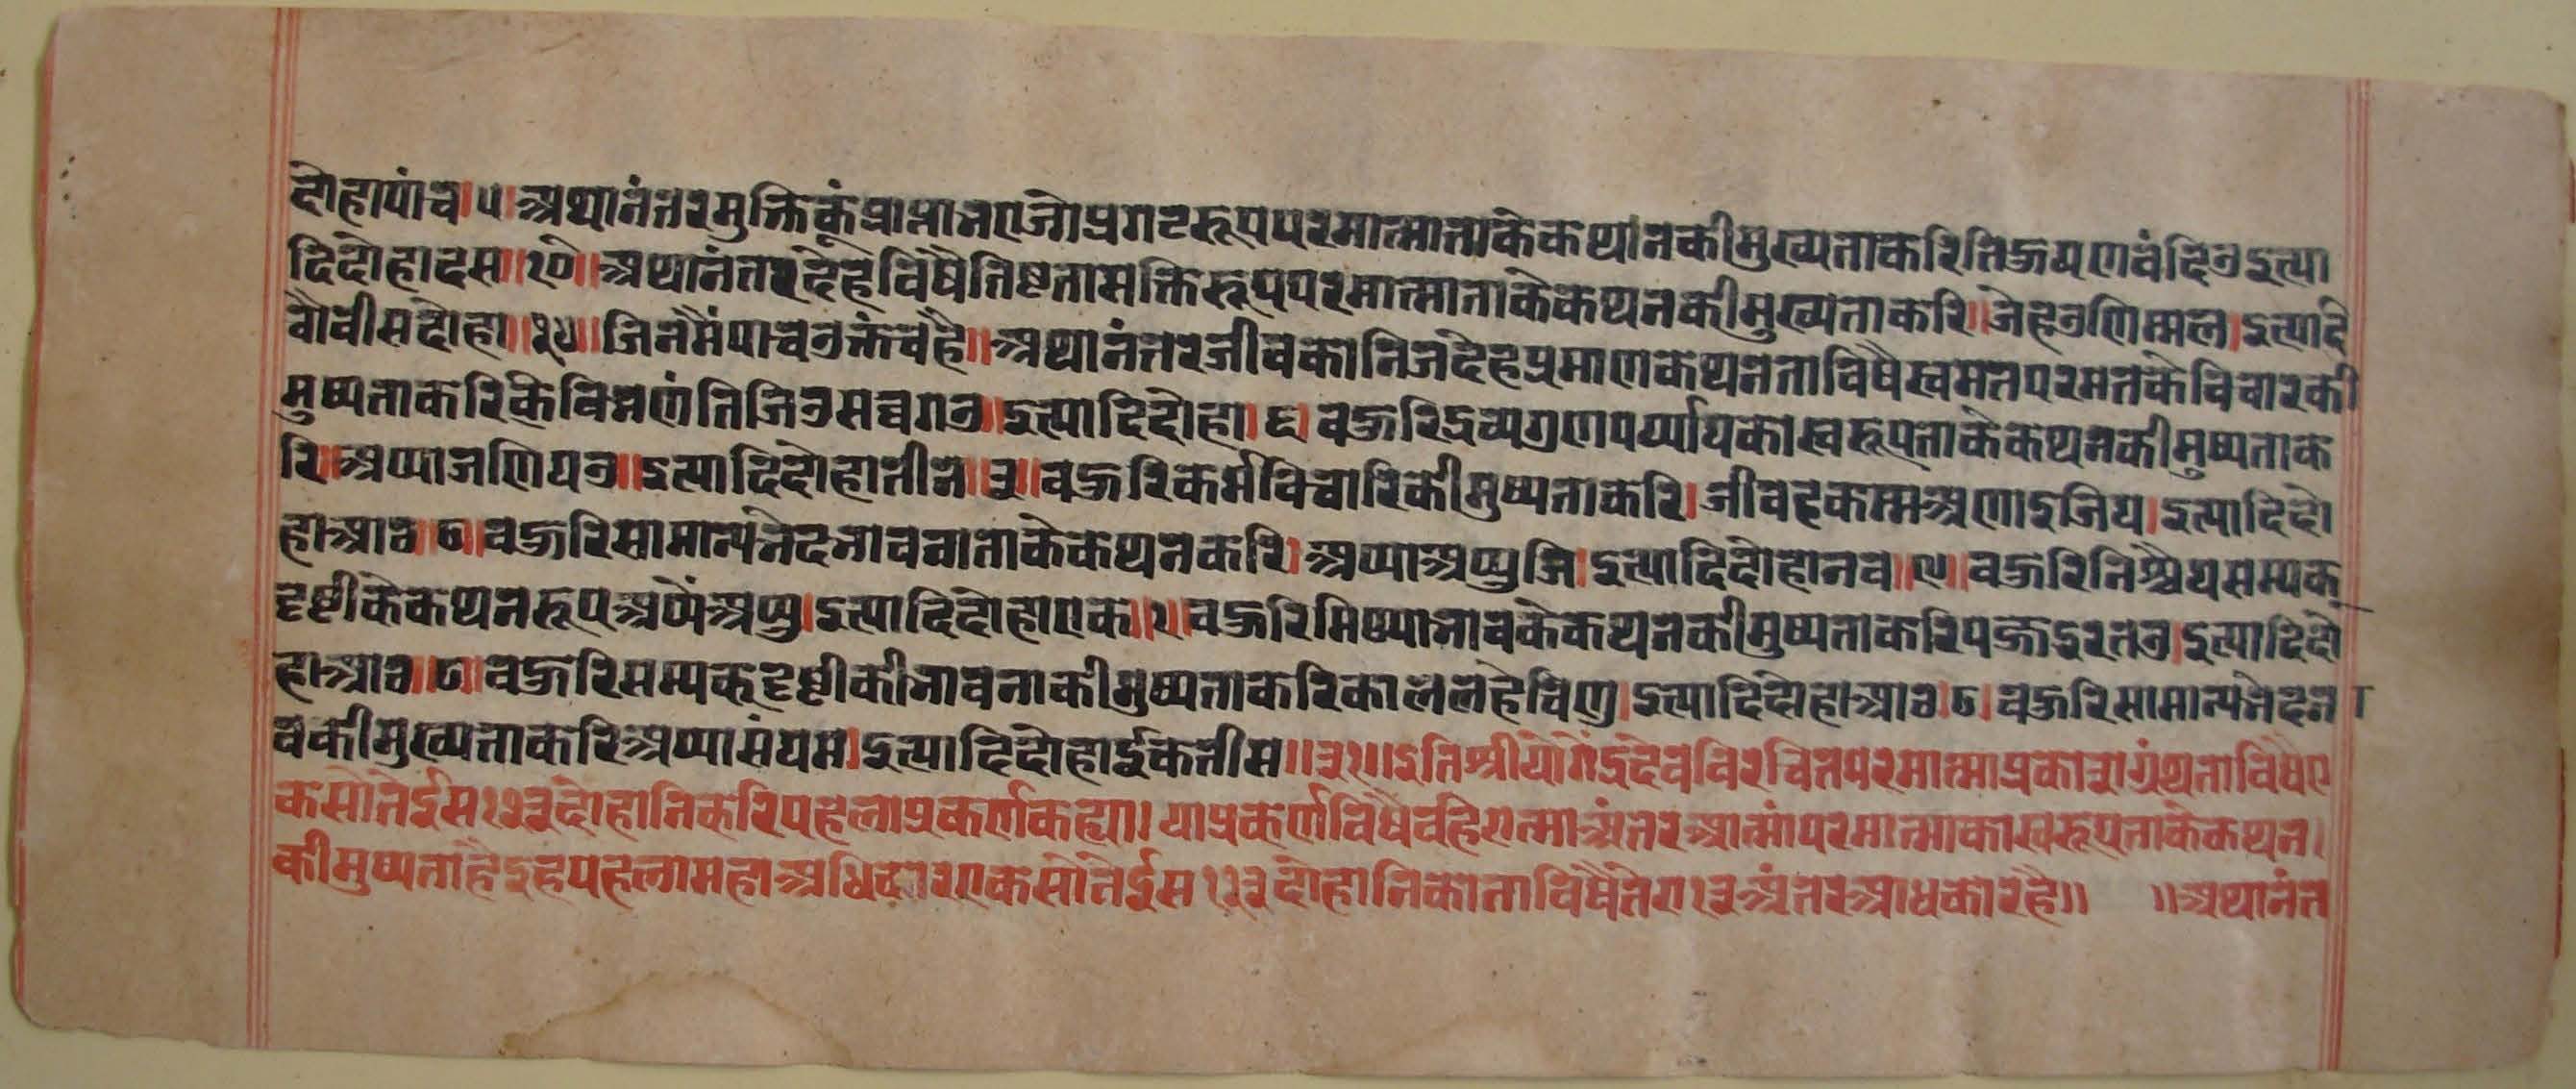 दोहापांच।५।अथानंतरमुक्तिकूंप्राप्तभएजोप्रगटरूपपरमात्माताकेकथांनकीमुख्यताकरितिहुयणवंदिउइत्या
दिदोहादस॥१०॥अथानंतरदेहविषैतिष्टतासक्तिरूपपरमात्माताकेकथनकीमुख्यताकरि॥जेहउणिम्मल।इत्यादि
चौवीसदोहा॥२४॥जिनमैंपाचउक्तंचहै॥अथानंतरजीवकोनिजदेहप्रमाणकथनताविषैस्वमतपरमतकेविचारकी
मुष्यताकरिकेविभणंतिजिउसव्वगउ॥इत्यादिदोहा।६।बहुरिद्रव्यगुणपर्य्यायकोस्वरूपताकेकथनकीमुष्यताक
रि॥अप्पाजणियउ॥इत्यादिदोहातीन॥३॥बहुरिकर्मविचारिकीमुष्यताकरि।जीवहकम्मअणाइजिय।इत्यादिदो
हाआठ॥८॥बहुरिसामान्यभेदभावनाताकेकथनकरि।अप्पाअप्पुजि।इत्यादिदोहानव॥९॥बहुरिनिश्चैयसम्यक्
दृष्टीकेकथनरूपअप्पेंअप्पु।इत्यादिदोहाएक॥१॥बहुरिमिथ्याभावकेकथनकीमुष्यताकरिपज्जइरतउ।इत्यादिदो
हाआठ॥८॥बहुरिसम्यकदृष्टीकीभावनाकीमुष्यताकरिकाललहेविणु।इत्यादिदोहाआठ।८।बहुरिसामान्यभेदभा
वकीमुख्यताकरिअप्पासंयम।इत्यादिदोहाईकतीस॥३१॥इतिश्रीयोगेंद्रदेवविरचितपरमात्माप्रकाशग्रंथताविषैए
कसौतेईस१२३दोहानिकरिपहलाप्रकर्णकह्या।याप्रकर्णविषैवहिरात्माअंतरआत्मांपरमात्माकास्वरूपताकेकथन।
कीमुष्यताहैइहपहलामहाअधिकारएकसौतेईस१२३दोहानिकोताविषैतेरा१३अंतरआधकारहै॥ ॥अथानंत